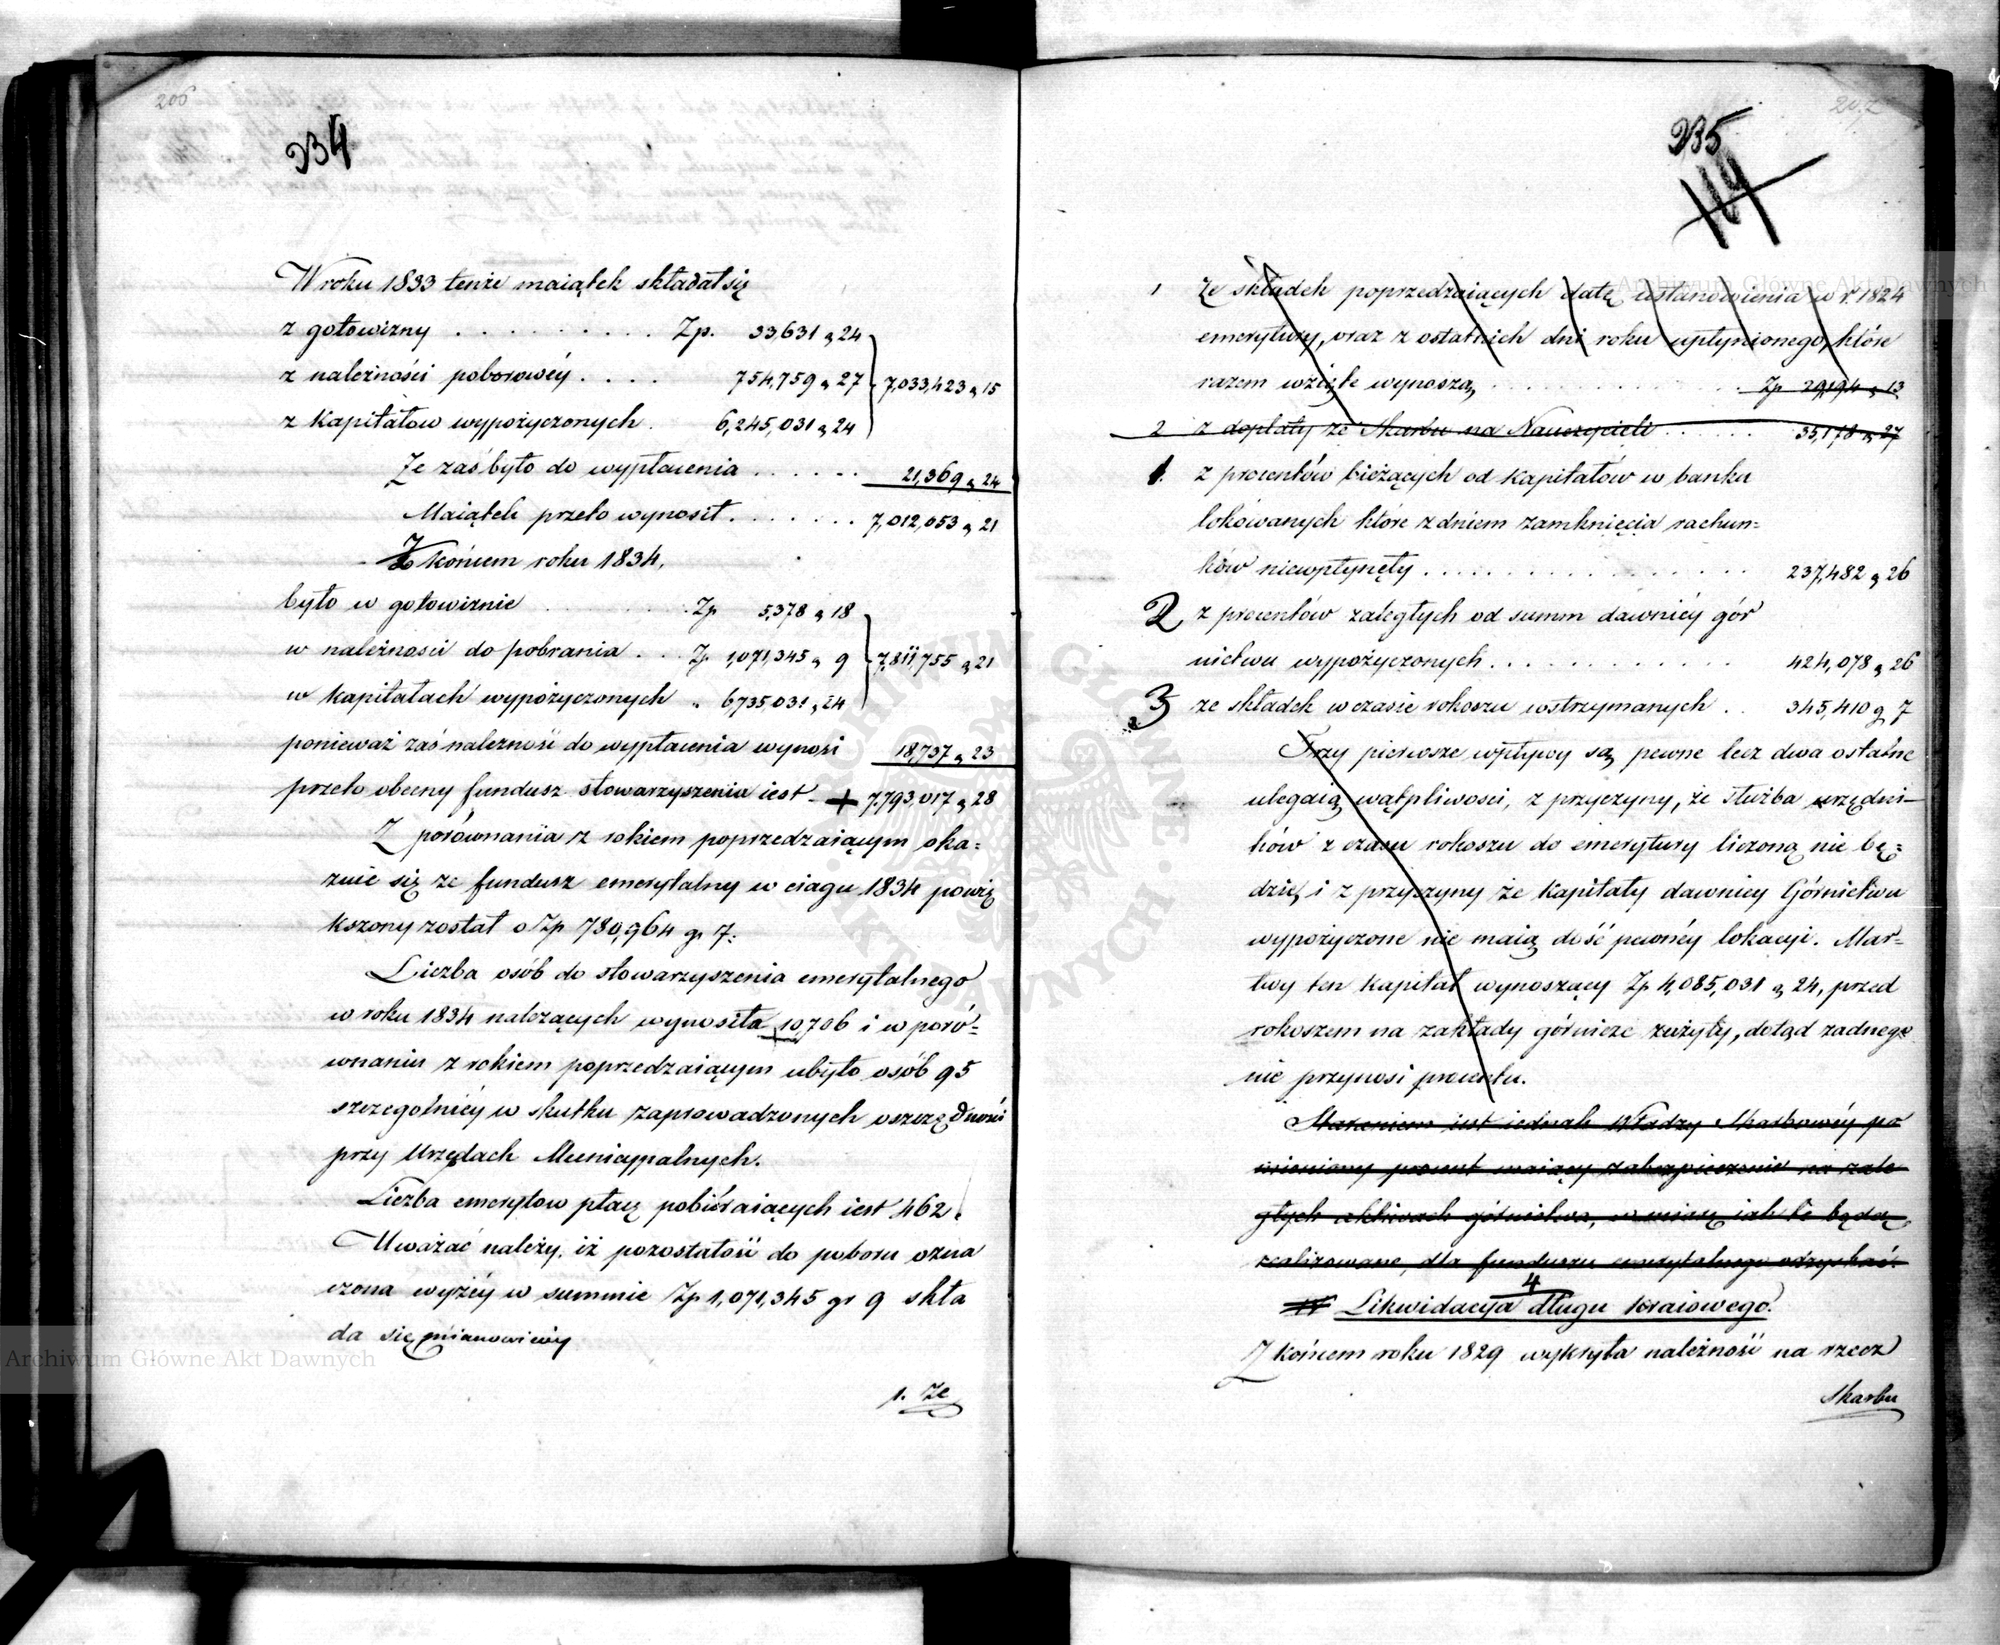 206
234
W roku 1833 tenże maiątek składał się
z gotowizny . . . . . . . . . . Zp. 33,631 „ 24
z należności poborowéy . . . . 754,759 „ 27 7,033,423 „ 15
z kapitałów wypożyczonych . 6,245,031 „ 24
Że zaś było do wypłacenia . . . . . . 21,369 „ 24
Maiątek przeto wynosił . . . . . . . 7,012,053 „ 21
Z końcem roku 1834,
było w gotowiznie . . . . . . . . Zp 5,378 „ 18
w należności do pobrania . . . Zp 1,071,345 „ 9 7,811,755 „ 21
w kapitałach wypożyczonych „ 6,735,031 „ 24
ponieważ zaś należność do wypłacenia wynosi 18,737 „ 23
przeto obecny fundusz stowarzyszenia iest + 7,793,017 „ 28
Z porównania z rokiem poprzedzaiącym oka=
zuie się że fundusz emerytalny w ciągu 1834 powię
kszony został o Zp 780,964 gr 7.
Liczba osób do stowarzyszenia emerytalnego
w roku 1834 należących wynosiła 10,706 i w poró=
wnaniu z rokiem poprzedzaiącym ubyło osób 95
szczególniéy w skutku zaprowadzonych oszczędności
przy Urzędach Municypalnych.
Liczba emerytów płacę pobieraiących iest 462.
Uważać należy, iż pozostałość do poboru ozna
czona wyżéy w summie Zp 1,071,345 gr 9 skła
da się mianowiciéy
1. Ze
207
235
119
1 Ze składek poprzedzaiących datę ustanowienia w r. 1824
emerytury, oraz z ostatnich dni roku upłynionego, które
razem wzięte wynoszą . . . . . . . . . . . . Zp 29,194 „ 13
2 z dopłaty ze Skarbu na Nauczycieli . . . . . . 35,178 „ 27
1. z procentów bieżących od kapitałów w banku
lokowanych które z dniem zamknięcia rachun=
ków niewpłynęły . . . . . . . . . . . . . . . 237,482 „ 26
2 z procentów zaległych od summ dawniéy gór
nictwu wypożyczonych . . . . . . . . . . . 424,078 „ 26
3 ze składek w czasie rokoszu wstrzymanych . . 345,410 g 7
Trzy pierwsze wpływy są pewne lecz dwa ostatne
ulegaią wątpliwości, z przyczyny, że służba urzędni=
ków z czasu rokoszu do emerytury liczoną nie bę=
dzie, i z przyczyny że kapitały dawniéy Górnictwu
wypożyczone nie maią dość pewnéy lokacyi. Mar=
twy ten kapitał wynoszący Zp 4,085,031 „ 24, przed
rokoszem na zakłady górnicze zużyty, dotąd żadnego
nie przynosi procentu.
Staraniem iest iednak Władzy Skarbowéy po
mieniony procent maiący zabezpieczenie na zale
głych aktiwach górnictwa, w miarę iak te będą
realizowane, dla funduszu emerytalnego odzyskać.
4
Likwidacyia długu kraiowego.
Z końcem roku 1829 wykryta należność na rzecz
Skarbu
Archiwum Główne Akt Dawnych
Archiwum Główne Akt Dawnych
ARCHIWUM GŁÓWNE AKT DAWNYCH